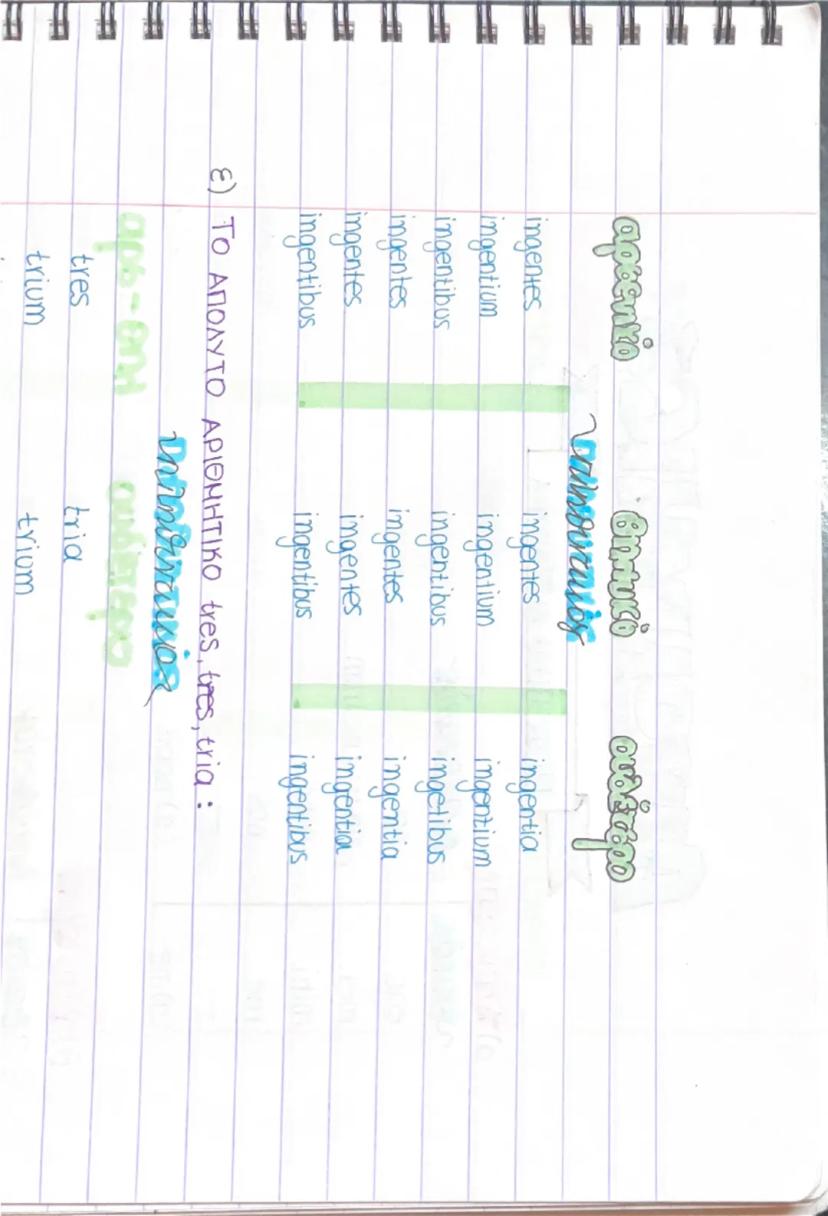 αρσενικό θηλυκό ουδέτερο
πληθυντικός
ingentes ingentes ingentia
ingentium ingentium ingentium
ingentibus ingentibus ingetibus
ingentes ingentes ingentia
ingentes ingentes ingentia
ingentibus ingentibus ingentibus
ε) ΤΟ ΑΠΟΛΥΤΟ ΑΡΙΘΜΗΤΙΚΟ tres, tres, tria :
πληθυντικός
αρσ-θηλ ουδέτερο
tres tria
trium trium